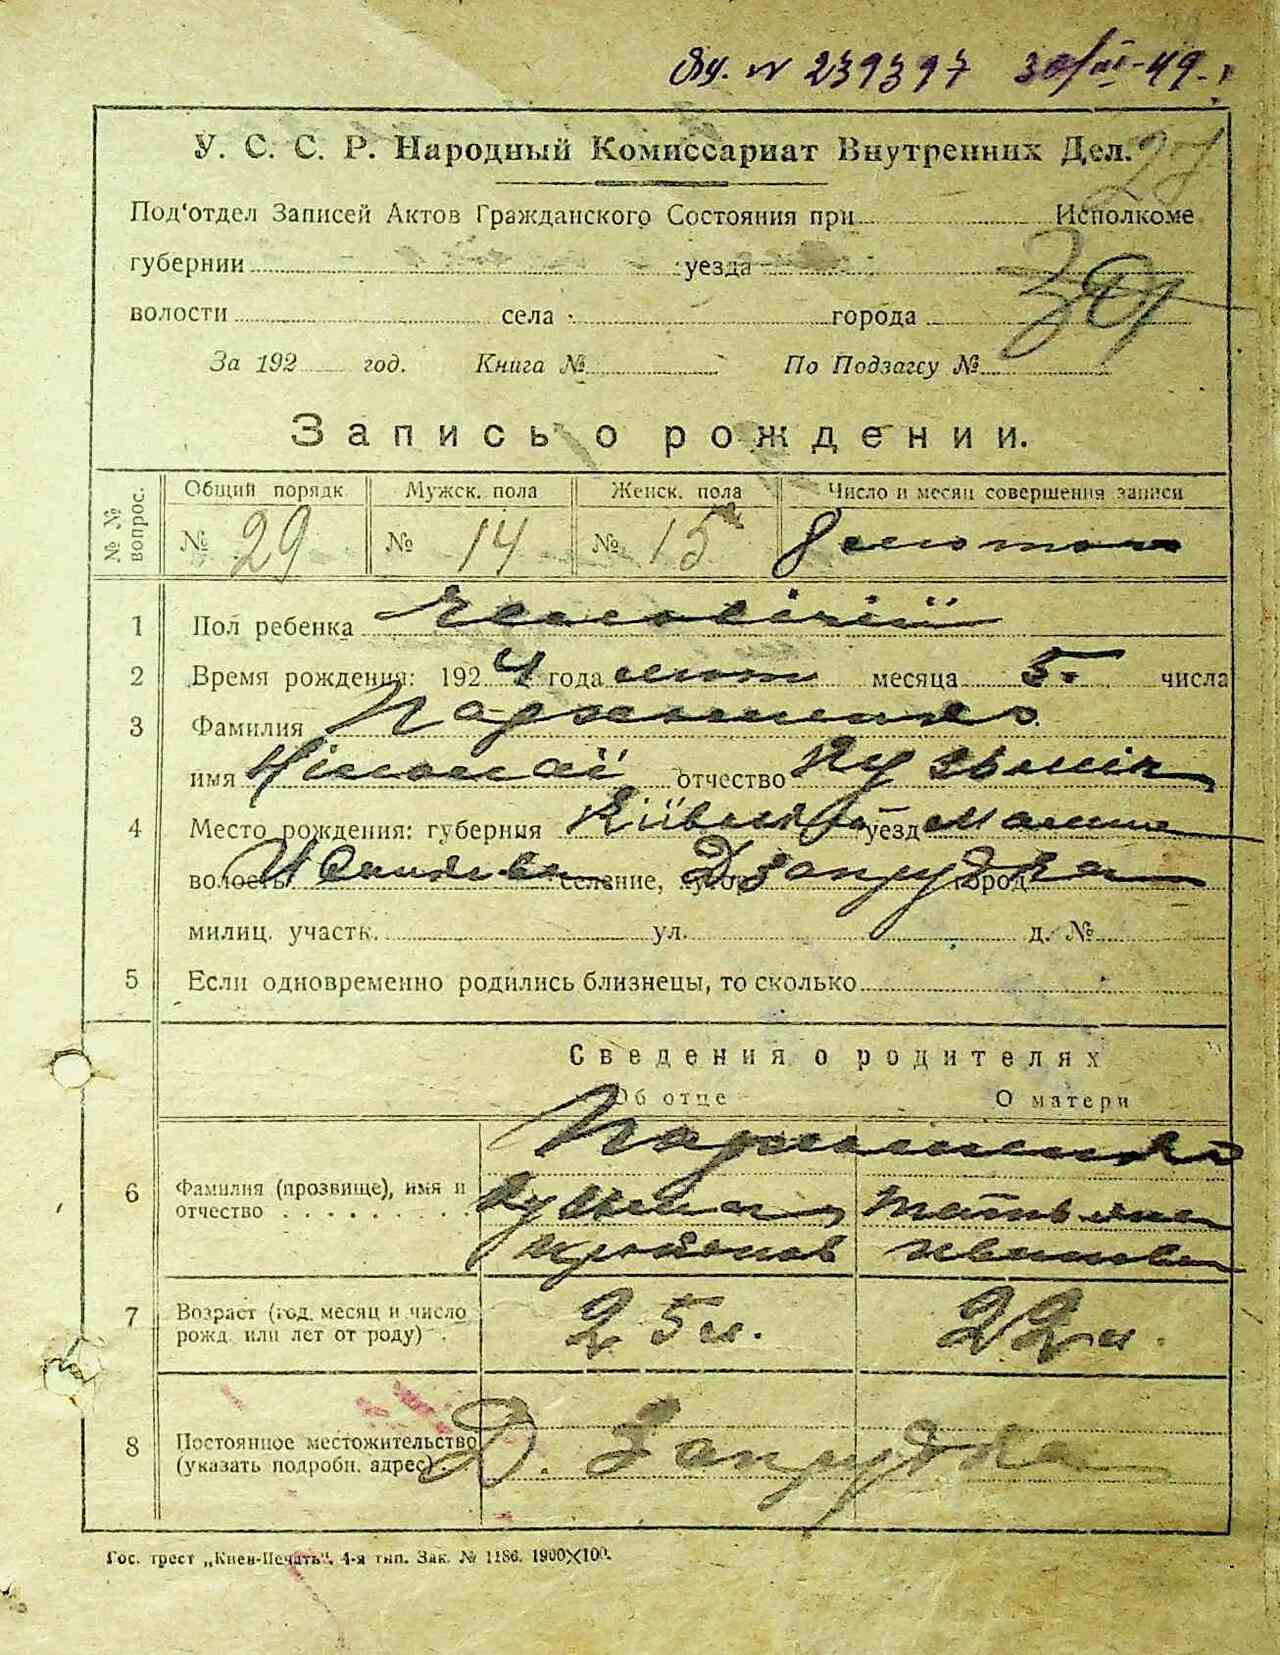 № 239397 30/III-49.
У. С. С. Р. Народный Комиссариат Внутренних Дел.
Под'отдел Записей Актов Гражданского Состояния при Исполкоме
губернии уезда
волости села города
За 192 год. Книга № По Подзагсу №
Запись о рождении.
№ № вопрос. Общий порядк Мужск. пола Женск. пола Число и месяц совершения записи
№ 29 № 14 № 15 8 лютого
1 Пол ребенка чоловічій
2 Время рождения: 1924 года лют месяца 5. числа
3 Фамилия Пархоменко
имя Ніколай отчество Кузьмін
4 Место рождения: губерния уезд Малин
волость селение, хутор город Д Запрудка
милиц. участк. ул. д. №
5 Если одновременно родились близнецы, то сколько
Сведения о родителях
Об отце О матери
Пархоменко
6 Фамилия (прозвище), имя и Кузьма Татьяна
отчество
7 Возраст (год, месяц и число 25 л. 22 л.
рожд. или лет от роду)
8 Постоянное местожительство Д. Запрудка
(указать подробн. адрес)
Гос. трест „Киев-Печать“. 4-я тип. Зак. № 1186. 1900×100.